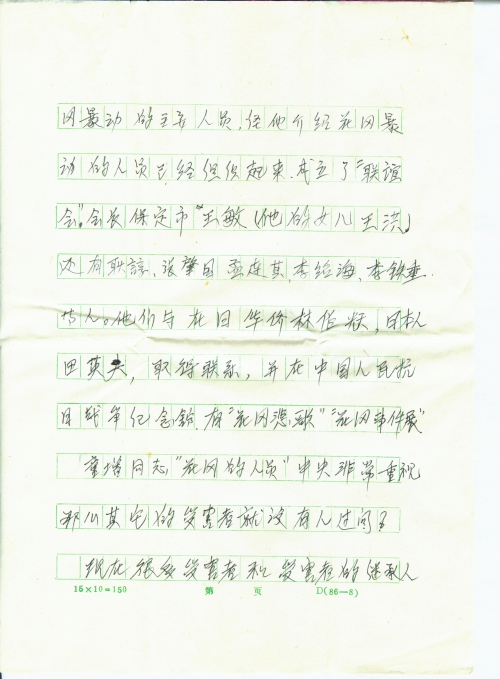 冈暴动的主要人员,经他介绍花冈暴
动的人员已经组织起来.成立了“联谊
会”会长保定市“王敏(他的女儿王洪)
还有耿谆、张肇国孟连其、李绍海、李铁垂.
等人。他们与在日华侨林伯耀,日本人
田英夫,取得联系,并在中国人民抗
日战争纪念馆.有“花冈悲歌”“花冈事件展”
同志“花冈的人员”中央非常重视
那么其它的受害者就没有人过问了
现在很多受害者和受害者的继承人
15×10=150 第 页 D(86—8)